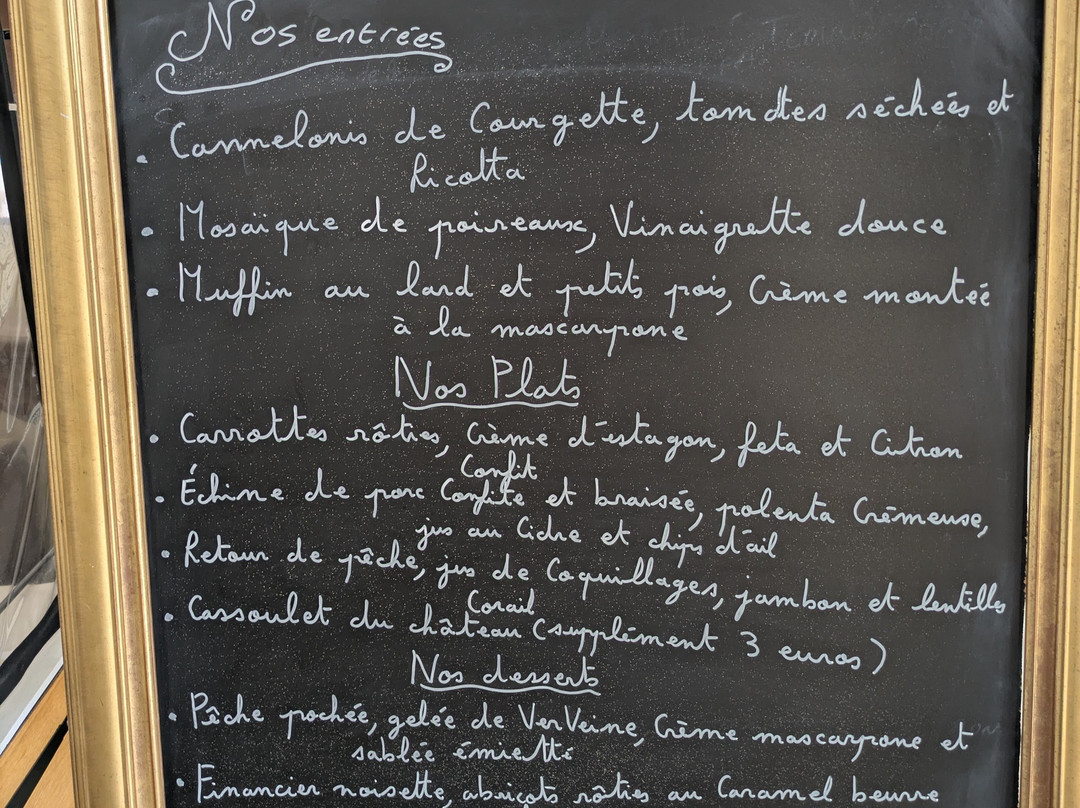 Nos entrées
. Cannelonis de Courgette, tomates séchées et
Ricotta
. Mosaïque de poireaux, Vinaigrette douce
. Muffin au lard et petits pois, Crème montée
à la mascarpone
Nos Plats
. Carrottes rôties, Crème d'estagon, feta et Citron
Confit
. Échine de porc Confite et braisée, polenta Crémeuse,
jus au Cidre et chips d'ail
. Retour de pêche, jus de Coquillages, jambon et lentilles
Corail
. Cassoulet du château (supplément 3 euros)
Nos desserts
. Pêche pochée, gelée de VerVeine, Crème mascarpone et
sablée émietté
. Financier noisette, abricots rôties au Caramel beurre